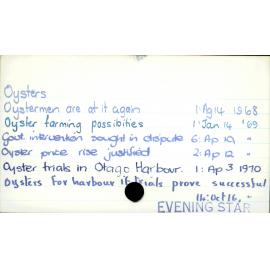 Oysters
Oystermen are at it again 1: Ag 14 1968
Oyster farming possibities 1: Jan 14 '69
Govt intervention sought in dispute 6: Ap 10, "
Oyster price rise justified 2: Ap 12 "
Oyster trials in Otago Harbour. 1: Ap 3 1970
Oysters for harbour if trials prove successful
16: Oct 16, "
EVENING STAR